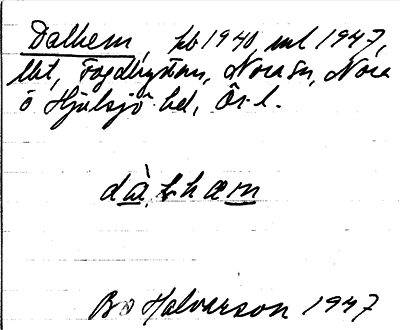 Dalhem, kb 1940, uml 1947,
lht, Fogdhyttan, Nora sn, Nora
o Hjulsjö bd, Ör. l.
dà.lhæm
Bo Halvarson 1947